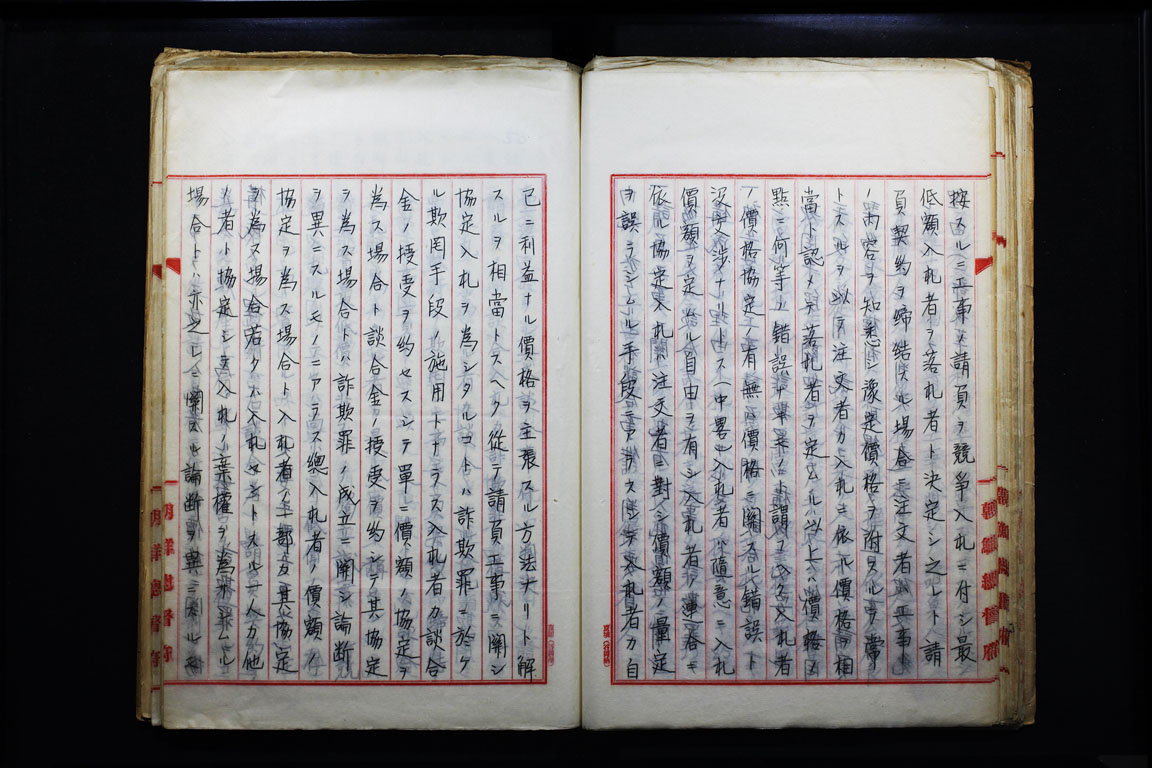 按スルニ工事ノ請負ヲ競爭入札ニ付シ最
低額入札者ヲ落札者ト決定シ之レト請
負契約ヲ締結スル場合ニ注文者カ工事
ノ內容ヲ知悉シ豫定價格ヲ附スルヲ常
トスルヲ以テ注文者カ入札ニ依ル價格ヲ相
當ト認メテ落札者ヲ定ムル以上ハ價格ノ
點ニ何等ノ錯誤ナ ノト謂フヘク入札者
ノ價格協定ノ有無ハ價格ニ關スル錯誤ト
沒交涉ナリトス(中畧)入札者ハ隨意ニ入札
價額ヲ定ムル自由ヲ有シ入札者ノ連合ニ
依ル協定入札ハ注文者ニ對シ價額ノ量定
ヲ誤ラシムル手段ニアラス 入札者カ自
己ニ利益ナル價格ヲ主張スル方法ナリト解
スルヲ相當トスヘク從テ請負工事ニ關シ
協定入札ヲ為シタルコトハ詐欺罪ニ於ケ
ル欺罔手段ノ施用トナラス入札者カ談合
金ノ授受ヲ約セスシテ單ニ價額ノ協定ヲ
為ス場合ト談合金ノ授受ヲ約シテ其協定
ヲ為ス場合トハ詐欺罪ノ成立ニ關シ論斷
ヲ異ニスルモノニアラス總入札者ノ價額ノ
協定ヲ為ス場合ト入札者ノ一部カ其協定
ヲ為ス場合若クハ入札セントスル一人カ他
ノ者ト協定シ入札ノ棄權ヲ為サシムル
場合トハ亦之レニ關スル論斷ヲ異ニスルモ
朝鮮總督府
朝鮮總督府